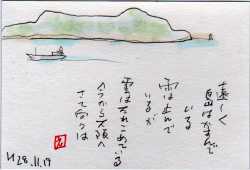 遠く
島はかすんで
いる
雨は止んで
いるが
雲はたれこめている
今から大阪へ
さて向うは
H28.11.19